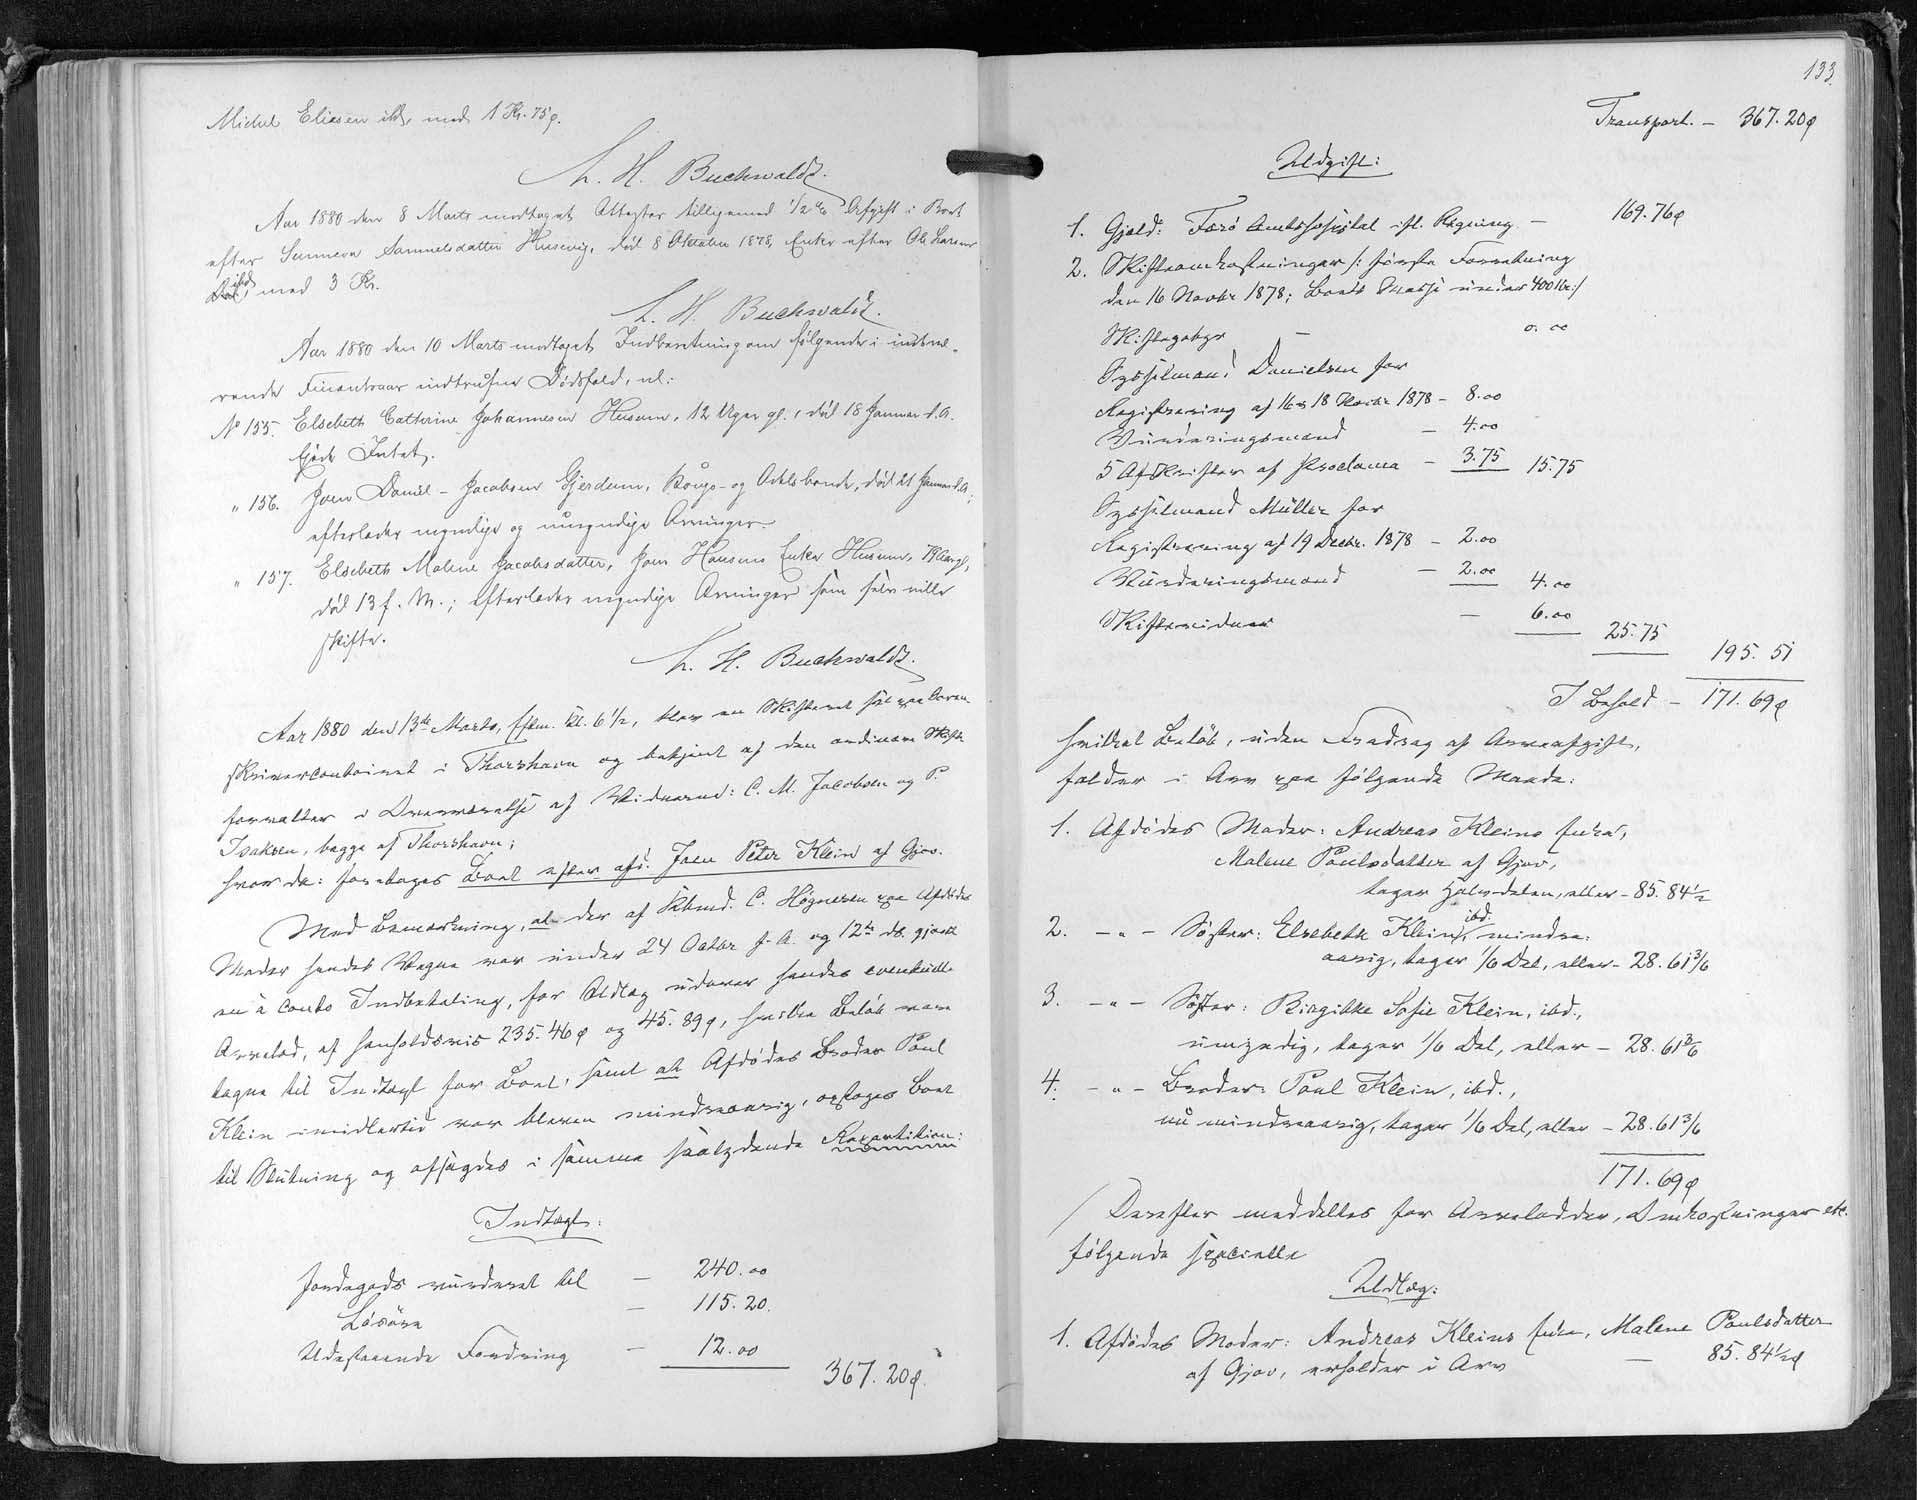 Michel Eliesen ibd, med 1 Kr. 75 ø.
L. H. Buchwaldt.
Aar 1880 den 8 Marts modtaget Attester tilligemed ½ % Afgift i Boet
efter Sunneva Samuelsdatter Husevig, død 8 Oktober 1878, Enke efter Ole Larsen
ibd, med 3 Kr.
L. H. Buchwaldt.
Aar 1880 den 10 Marts modtaget Indberetning om følgende i indevæ-
rende Finantsaar indtrufne Dødsfald, nl:
No 155. Elsebeth Catherine Johannesen Husum, 12 Uger gl., død 18 Januar d. A.
Ejede Intet.
" 156. Joen Daniel Jacobsen Gjerdum, Konge- og Odelsbonde, død 21 Januar d. A.;
efterlader myndige og umyndige Arvinger.
" 157. Elsebeth Malene Jacobsdatter, Joen Hansens Enke Husum, Aar gl,
død 13 f. M.; efterlader myndige Arvinger som selv ville
skifte.
L. H. Buchwaldt.
Aar 1880 den 13de Marts, Eftm. Kl. 6½, blev en Skifteret sat paa Soren-
skrivercontoiret i Thorshavn og betjent af den ordinære Skifte
forvalter i Overværelse af Vidnerne: C. M. Jacobsen og P.
Isaksen, begge af Thorshavn;
hvor da: foretoges Boet efter afd. Joen Peter Klein af Gjov.
Med Bemærkning, at der af Kbmd. C. Høgnesen paa Afdødes
Moder hendes Vegne var under 24 Octbr f. A. og 12te ds. gjort
en à conto Indbetaling, for Udlæg udover hendes eventuelle
Arvelod, af henholdsvis 235.46 ø og 45.89 ø, hvilke Beløb vare
tagne til Indtægt for Boet, samt at Afdødes Broder Poul
Klein imidlertid var bleven mindreaarig, optoges Boet
til Slutning og afsagdes i samme saalydende Repartition:
Indtægt:
Jordegods vurderet til — 240.00
Løsøre — 115.20.
Udestaaende Fordring — 12.00
367.20 ø.
133.
Transport. — 367.20 ø
Udgift:
1. Gjæld: Færø Amtshospital ifl. Regning — 169.76 ø
2. Skifteomkostninger /: første Forretning
den 16 Novbr 1878; Boets Masse under 400 Kr :/
Skiftegebyr — 0.00
Sysselmand Danielsen for
Registrering af 16 & 18 Novbr 1878 — 8.00
Vurderingsmænd — 4.00
5 Afskrifter af Proclama — 3.75 15.75
Sysselmand Müller for
Registrering af 19 Decbr. 1878 — 2.00
Vurderingsmænd — 2.00 4.00
Skiftevidner — 6.00
25.75
195.51
I Behold — 171.69 ø
hvilket Beløb, uden Fradrag af Arveafgift,
falder i Arv paa følgende Maade:
1. Afdødes Moder: Andreas Kleins Enke,
Malene Poulsdatter af Gjov,
tager Halvdelen, eller — 85.84½
2. — " — Søster: Elsebeth Klein, ibd. mindre-
aarig, tager 1/6 Del, eller — 28.61 3/6
3. — " — Søster: Birgitte Sofie Klein, ibd.,
umyndig, tager 1/6 Del, eller — 28.61 3/6
4. — " — Broder: Poul Klein, ibd.,
nu mindreaarig, tager 1/6 Del, eller — 28.61 3/6
171.69 ø
Derefter meddeltes for Arvelodder, Omkostninger etc.
følgende specielle
Udlæg:
1. Afdødes Moder: Andreas Kleins Enke, Malene Poulsdatter
af Gjov, erholder i Arv — 85.84½ ø